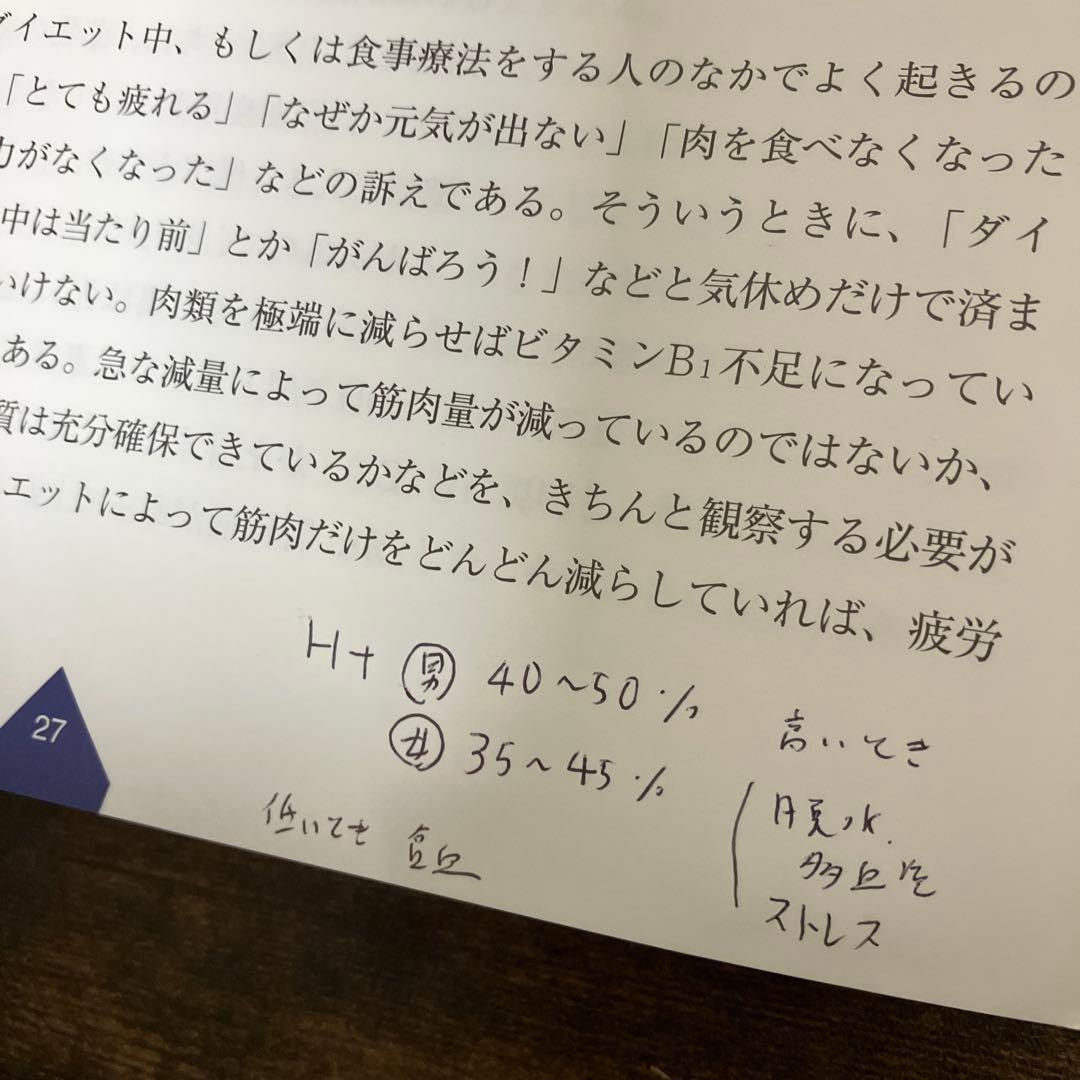 ダイエット中、もしくは食事療法をする人のなかでよく起きるの
「とても疲れる」「なぜか元気が出ない」「肉を食べなくなった
力がなくなった」などの訴えである。そういうときに、「ダイ
中は当たり前」とか「がんばろう！」などと気休めだけで済ま
いけない。肉類を極端に減らせばビタミンB₁不足になってい
ある。急な減量によって筋肉量が減っているのではないか、
質は充分確保できているかなどを、きちんと観察する必要が
エットによって筋肉だけをどんどん減らしていれば、疲労
Ht 男 40〜50%
女 35〜45%
高いてき
脱水
多血症
ストレス
低いてき 貧血
27